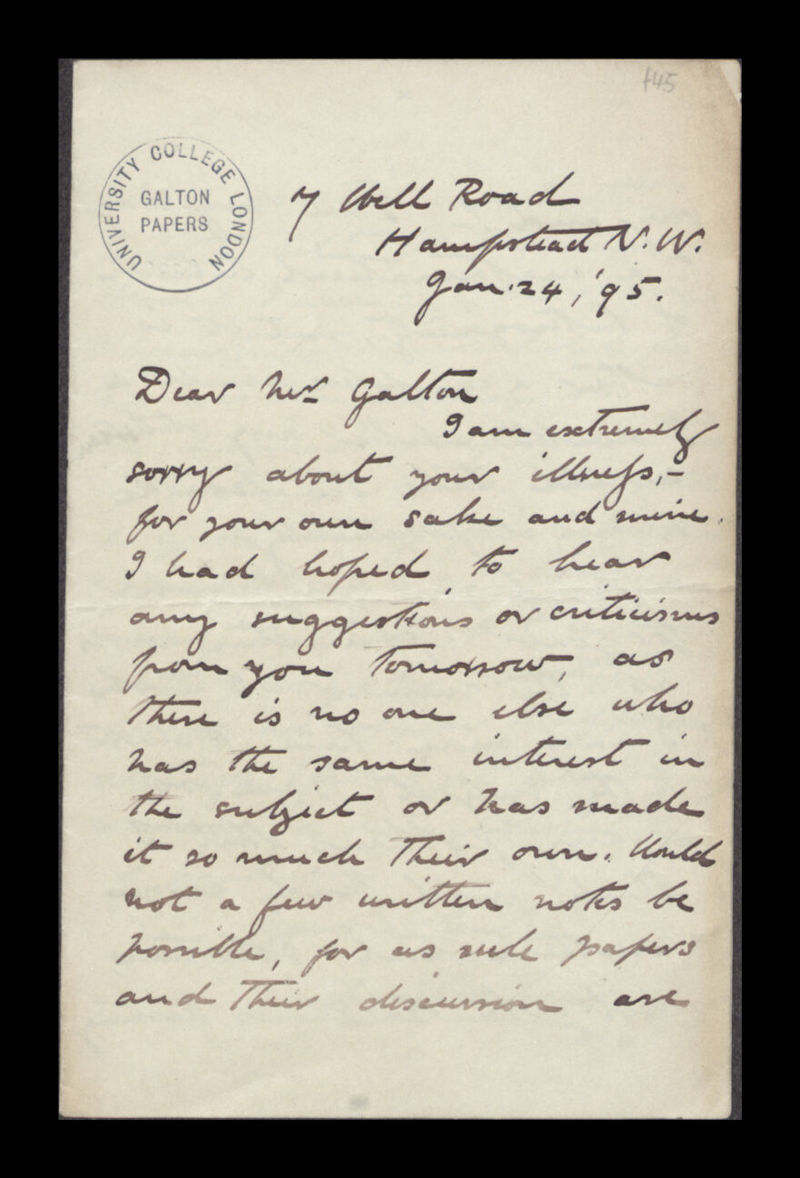 145
UNIVERSITY COLLEGE LONDON
GALTON
PAPERS
7 Well Road
Hampstead N.W.
Jan. 24, '95.
Dear Mr Galton
I am extremely
sorry about your illness, –
for your own sake and mine.
I had hoped to hear
any suggestions or criticisms
from you tomorrow, as
there is no one else who
has the same interest in
the subject or has made
it so much their own. Would
not a few written notes be
possible, for as rule papers
and their discussion are